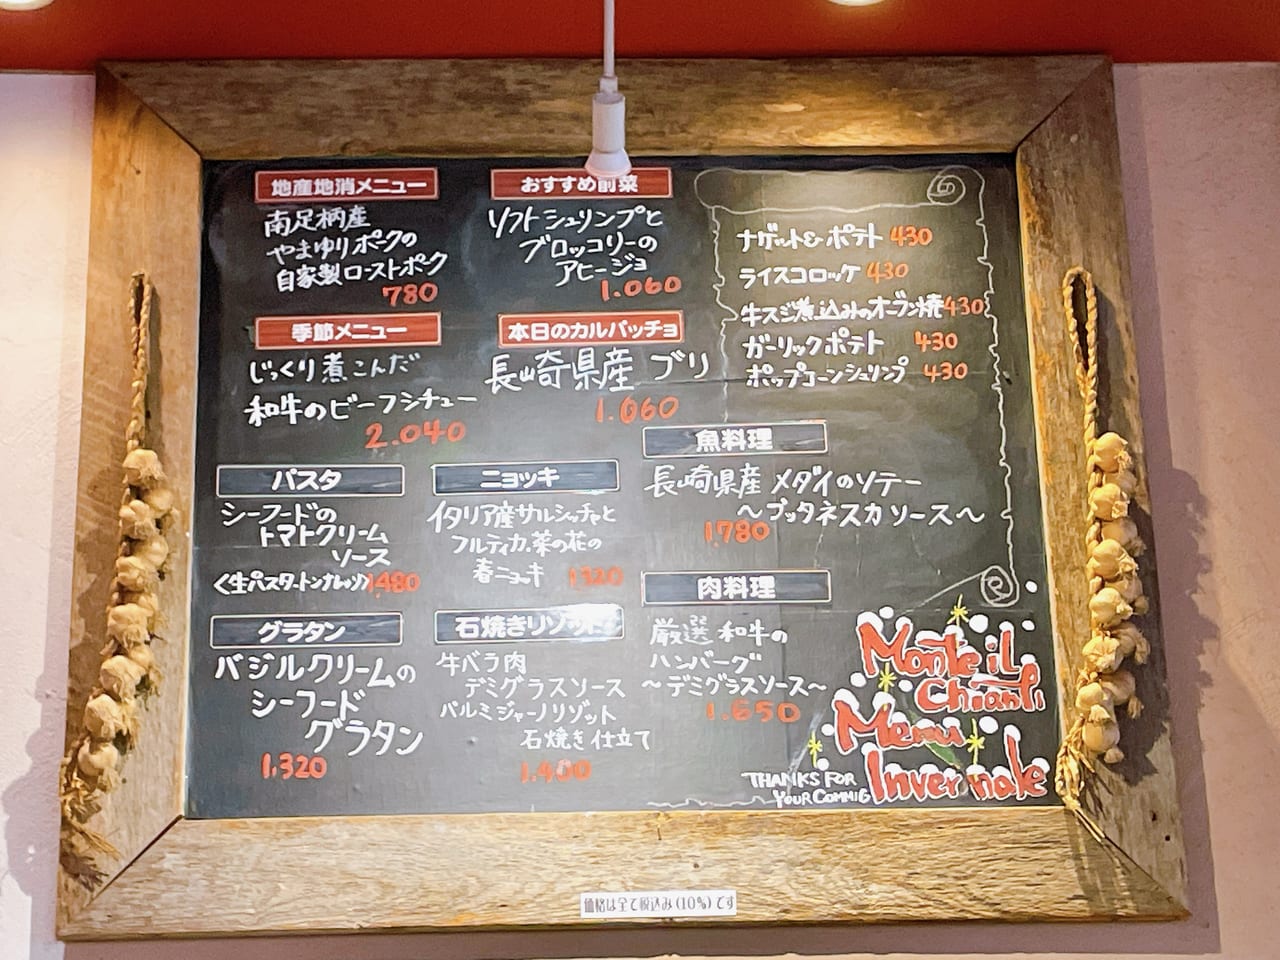 地産地消メニュー
南足柄産
やまゆりポークの
自家製ローストポーク
780
おすすめ前菜
ソフトシュリンプと
ブロッコリーの
アヒージョ
1.060
ナゲット&ポテト 430
ライスコロッケ 430
牛スジ煮込みのオーブン焼 430
ガーリックポテト 430
ポップコーンシュリンプ 430
季節メニュー
じっくり煮こんだ
和牛のビーフシチュー
2.040
本日のカルパッチョ
長崎県産 ブリ
1.060
魚料理
長崎県産 メダイのソテー
〜プッタネスカソース〜
1.780
パスタ
シーフードの
トマトクリーム
ソース
1.480
ニョッキ
イタリア産サルシッチャと
フルティカ、菜の花の
春ニョッキ
肉料理
厳選 和牛の
ハンバーグ
〜デミグラスソース〜
1.650
グラタン
バジルクリームの
シーフード
グラタン
1.320
石焼きリゾット
牛バラ肉
デミグラスソース
パルミジャーノリゾット
石焼き仕立て
Monte il
Chianti
Menu
Invernale
THANKS FOR
YOUR COMMIG
価格は全て税込み(10%)です